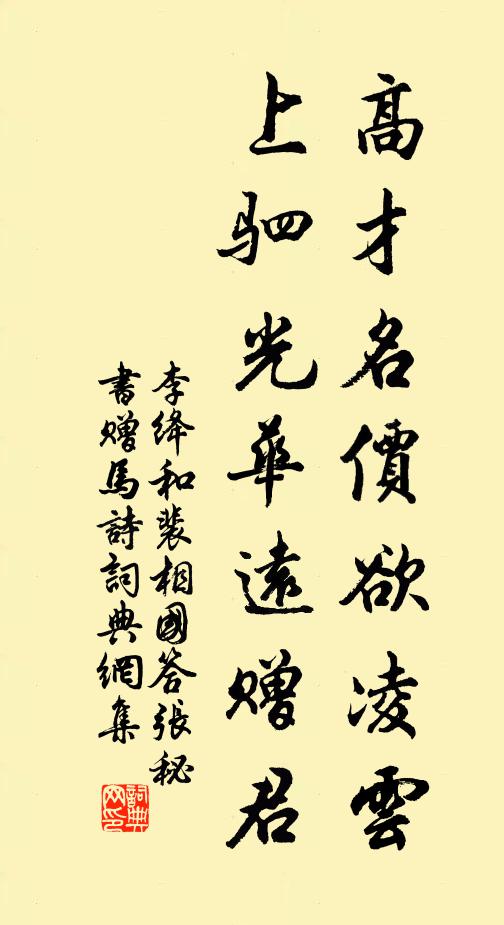 高才名價欲凌雲
上驷光華遠贈君
李绛和裴相國答張秘
書贈馬詩詞典網集
詞典
网印